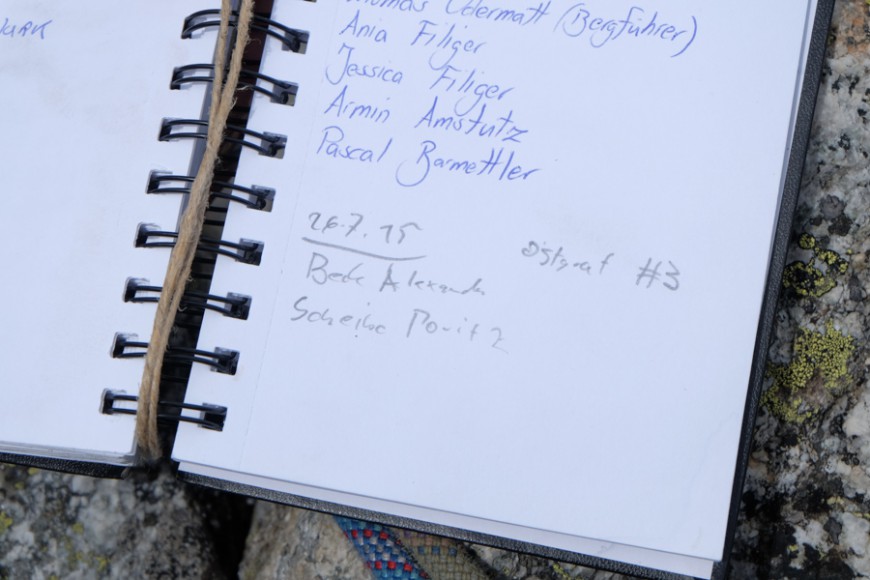 Odermatt (Bergführer)
Ania Filiger
Jessica Filiger
Armin Amstutz
Pascal Barmettler
26.7.15
Ostgrat #3
Alexander
Scheibe Moritz